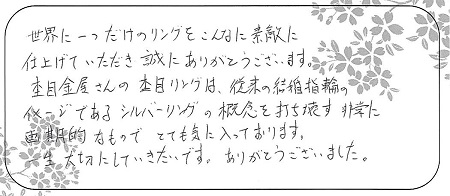 世界に一つだけのリングをこんなに素敵に
仕上げていただき誠にありがとうございます。
杢目金屋さんの杢目リングは、従来の結婚指輪の
イメージであるシルバーリングの概念を打ち壊す非常に
画期的なもので とても気に入っております。
一生大切にしていきたいです。ありがとうございました。